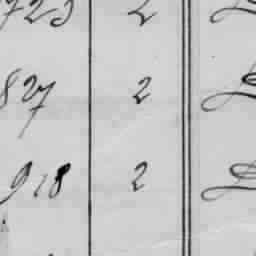 723 2
827 2
918 2